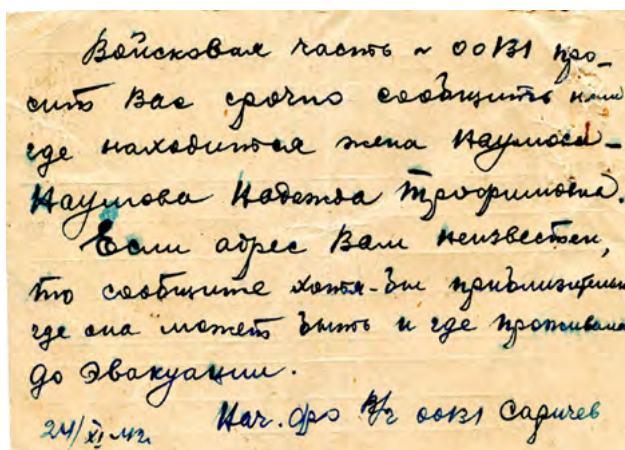 Войсковая часть № 00131 про-
сит Вас срочно сообщить нам
где находится жена Наумова -
Наумова Надежда Трофимовна.
Если адрес Вам неизвестен,
то сообщите хотя-бы приблизительно
где она может быть и где проживала
до эвакуации.
Нач. ФРО В/Ч 00131 Садичев